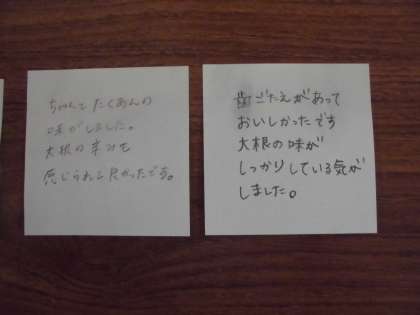 ちゃんとたくあんの
味がしました。
大根の辛みも
感じられて良かったです。
歯ごたえがあって
おいしかったです
大根の味が
しっかりしている気が
しました。